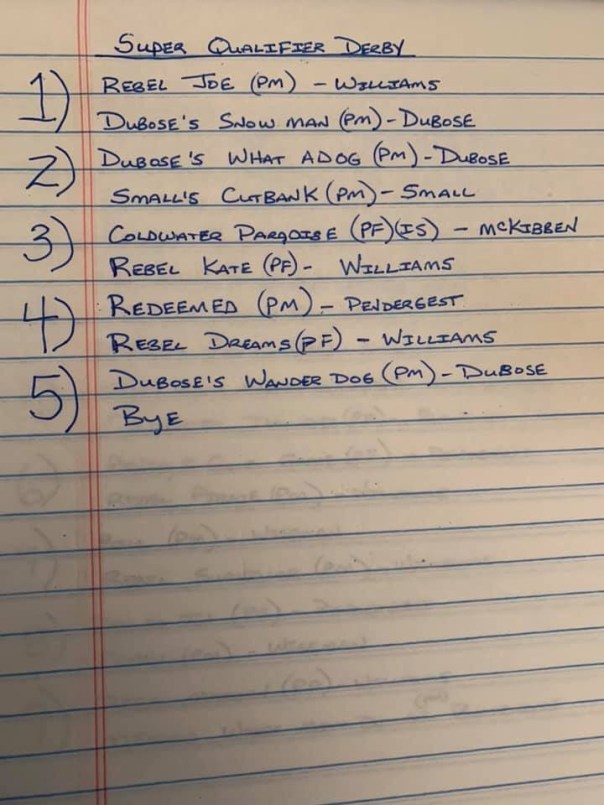 Super Qualifier Derby
1) Rebel Joe (PM) - Williams
Dubose's Snow Man (PM) - Dubose
2) Dubose's What Adog (PM) - Dubose
Small's Cutbank (PM) - Small
3) Coldwater Pardise (PF)(IS) - McKibben
Rebel Kate (PF) - Williams
4) Redeemed (PM) - Pendergest
Rebel Dreams (PF) - Williams
5) Dubose's Wander Dog (PM) - Dubose
Bye